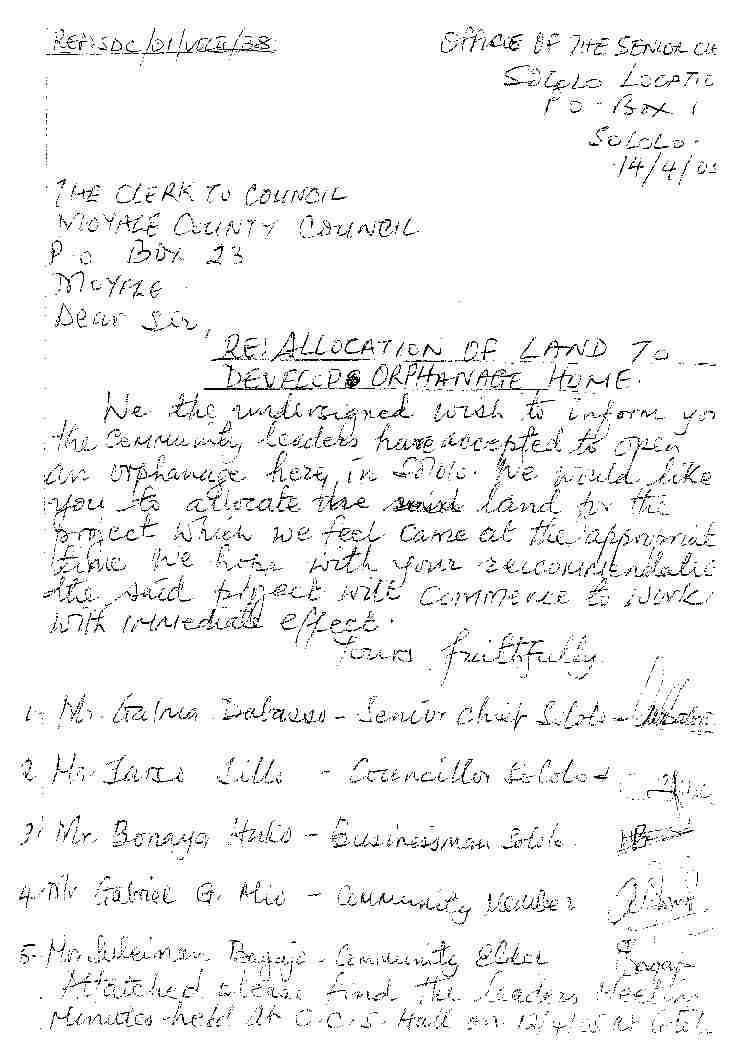 REF: SDC/01/VOL II/38
OFFICE OF THE SENIOR CH
SOLOLO LOCATIO
P O - BOX 1
SOLOLO.
14/4/05
THE CLERK TO COUNCIL
MOYALE COUNTY COUNCIL
P O BOX 23
MOYALE
Dear Sir,
RE: ALLOCATION OF LAND TO
DEVELOP ORPHANAGE HOME.
We the undersigned wish to inform you
the community leaders have accepted to open
an orphanage here, in Sololo. We would like
you to allocate the land for the
project which we feel came at the appropriat
time We hope with your reccommendatio
the said project will commence to work
with immediate effect.
Yours faithfully
1. Mr. Galma Dabasso - Senior Chief Sololo -
2. Mr. Jarso Jillo - Councillor Sololo
3. Mr. Bonaya Huko - Businessman Sololo.
4. Mr Gabriel G. Mio - Community Member
5. Mr. Suleiman Bagaja - Community Elder
Attatched please find the leaders Meetin
Minutes held at C.C.S. Hall on 12/4/05 at